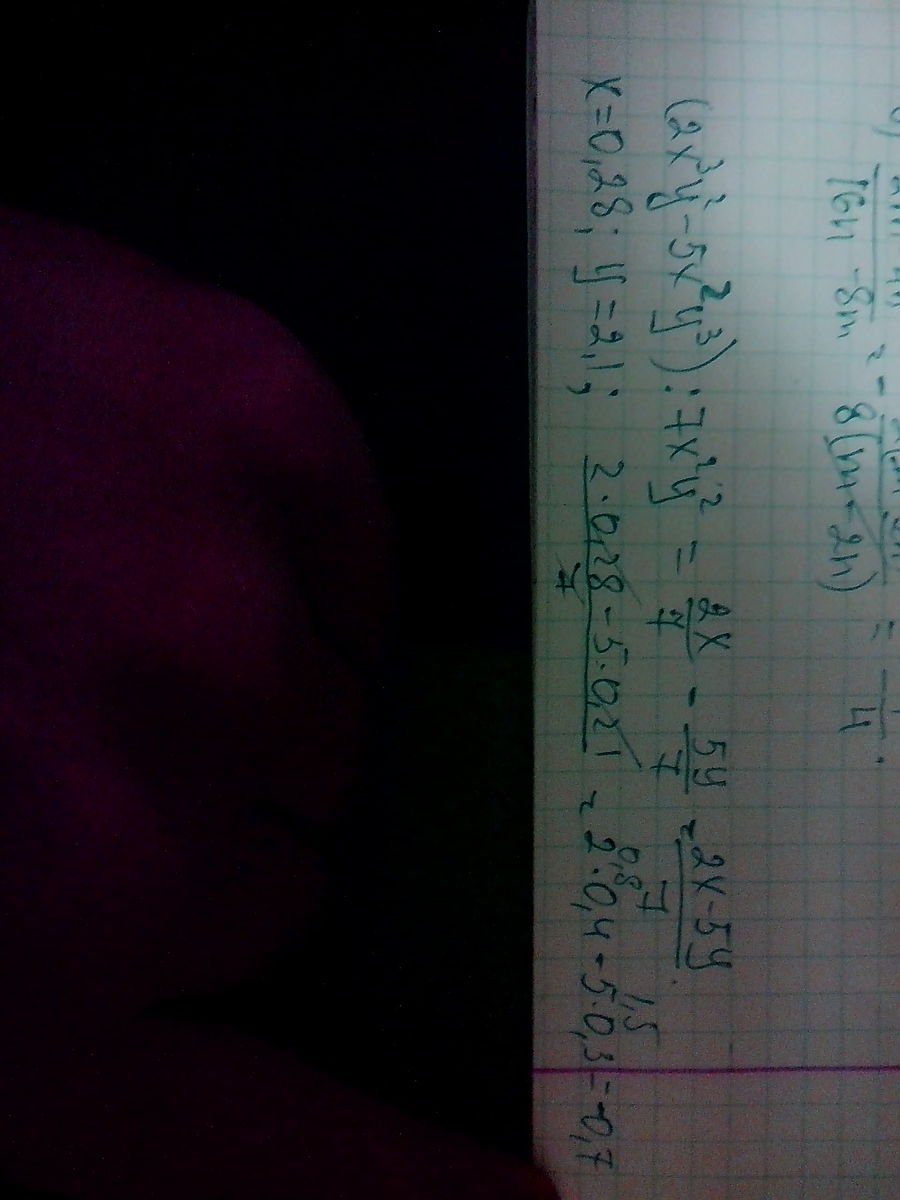 16n - 8m = - 8(m - 2n) = - 4 .
(2x³y² - 5x²y³) : 7x²y² = 2x/7 - 5y/7 = 2x - 5y / 7
x = 0,28; y = 2,1; 2·0,28 - 5·0,21 / 7 = 2·0,4 - 5·0,3 = -0,7
0,8 1,5